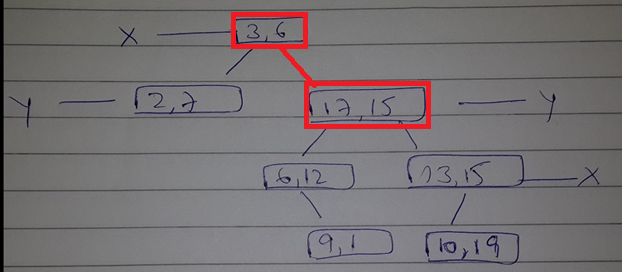 X 3,6
Y 2,7 17,15 Y
6,12 13,15 X
9,1 10,19